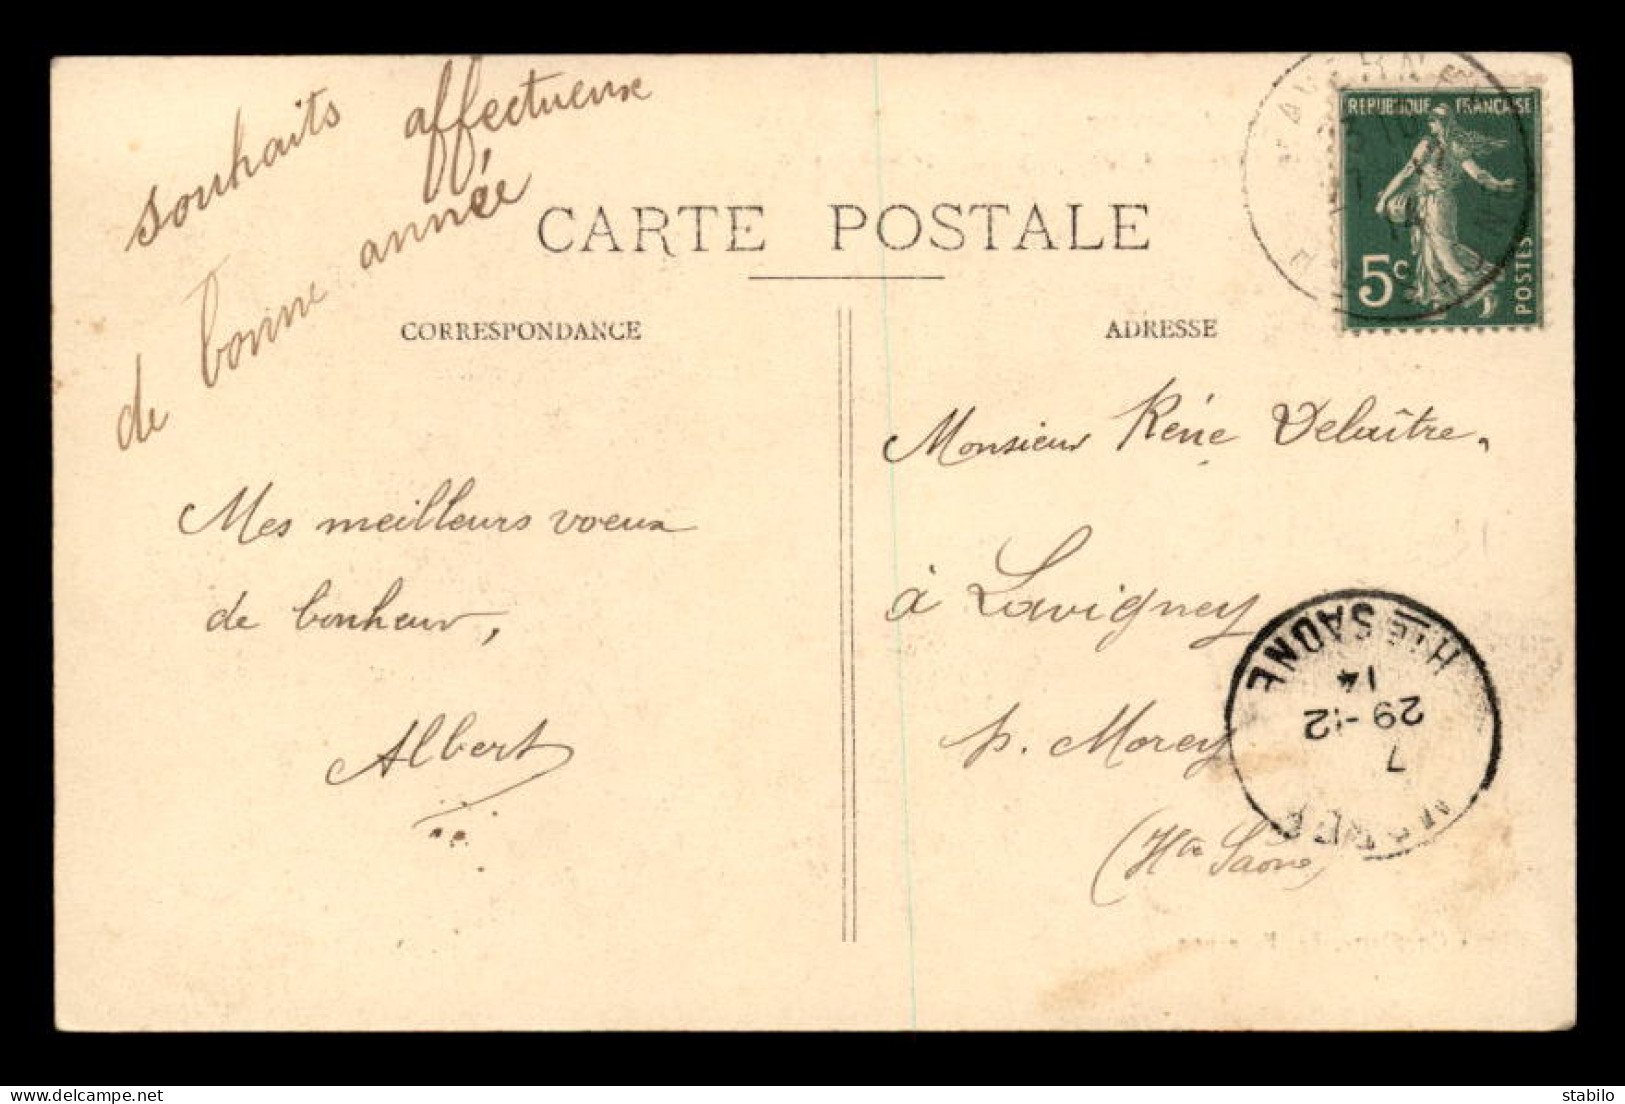 souhaits affectueux
de bonne année
CARTE POSTALE
CORRESPONDANCE
ADRESSE
REPUBLIQUE FRANÇAISE
5c
POSTES
Mes meilleurs voeux
de bonheur,
Albert
Monsieur Réné Delaître,
à Lavigney
p. Morey
(Hte Saône)
Hte SAONE
14
29-12
7